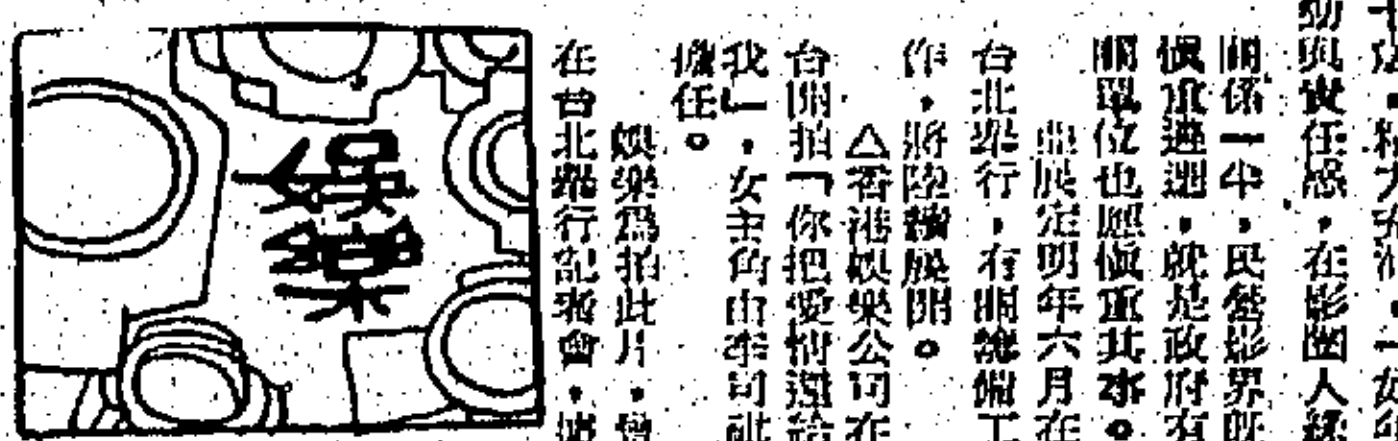 動與責任感，在影圈人緣
關係一半，民營影界既
慎重遴選，就是政府有
關單位也應慎重其事。
亞展定明年六月在
台北舉行，有關籌備工
作，將陸續展開。
△香港娛樂公司在
台開拍「你把愛情還給
我」，女主角由本司
擔任。
娛樂爲拍此片，曾
在台北舉行記者會，
娛樂